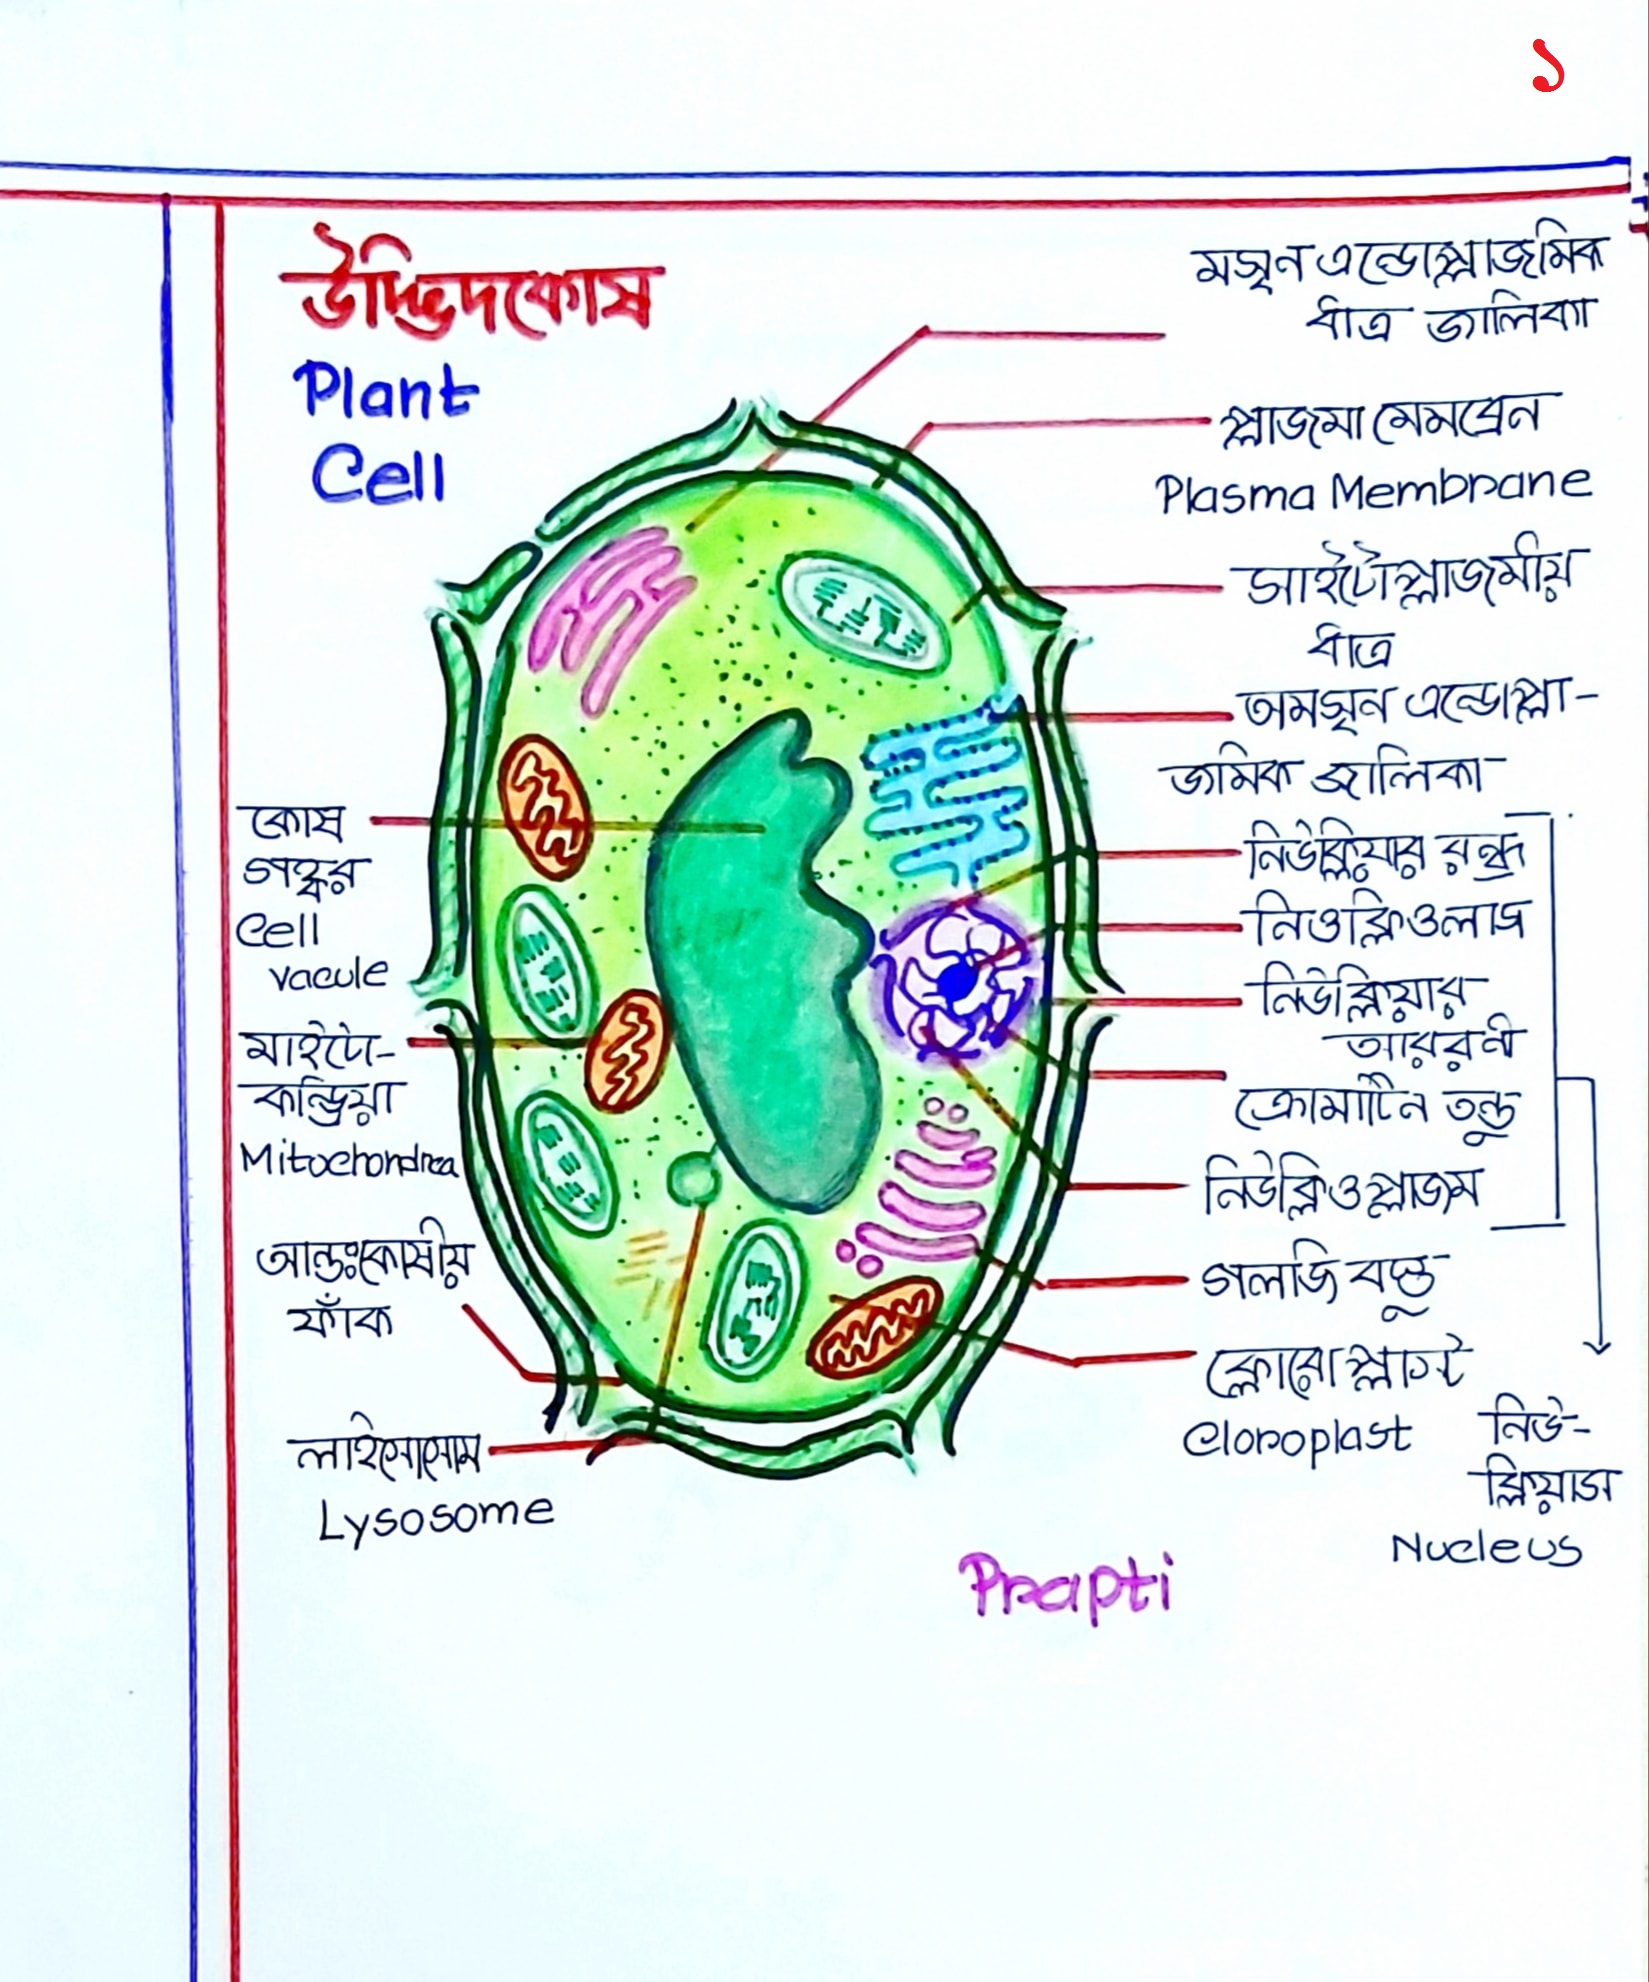 ১
উদ্ভিদকোষ
Plant
Cell
মসৃন এন্ডোপ্লাজমিক
ধাত্র জালিকা
প্লাজমা মেমব্রেন
Plasma Membrane
সাইটোপ্লাজমীয়
ধাত্র
অমসৃন এন্ডোপ্লা-
জমিক জালিকা
নিউক্লিয়ার রন্ধ্র
নিওক্লিওলাস
নিউক্লিয়ার
আবরনী
ক্রোমাটিন তন্তু
নিউক্লিওপ্লাজম
গলজি বস্তু
ক্লোরোপ্লাস্ট
Cloroplast
নিউ-
ক্লিয়াস
Nucleus
কোষ
গহ্বর
Cell
vacule
মাইটো-
কন্ড্রিয়া
Mitochondrea
আন্তঃকোষীয়
ফাঁক
লাইসোসোম
Lysosome
Prapti